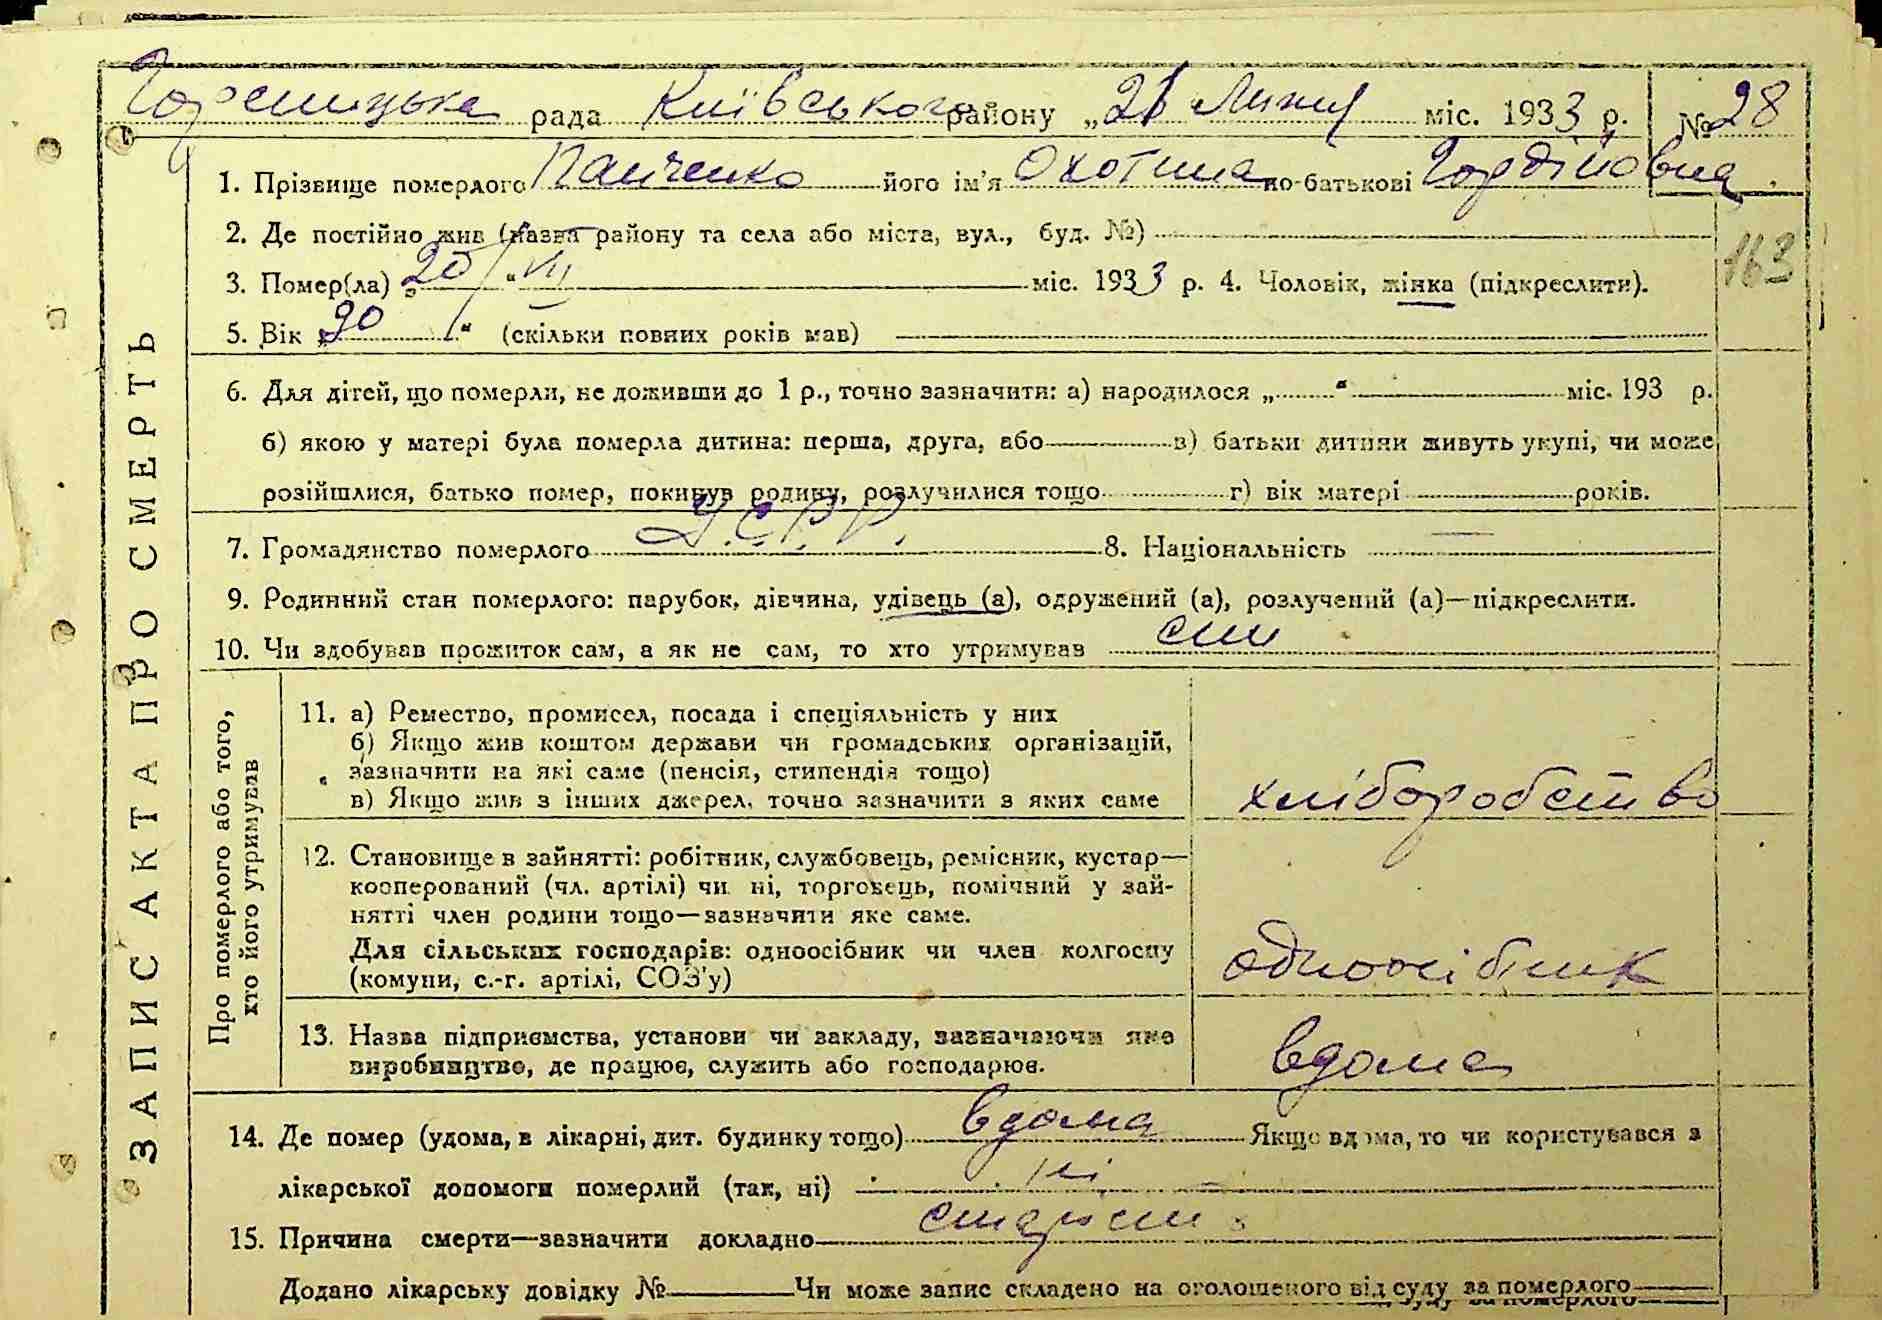 Гореницька рада Київського району „21 Липня міс. 1933 р. № 28
1. Прізвище померлого Панченко його ім’я Охотина по-батькові Гордійовна
163
2. Де постійно жив (назва району та села або міста, вул., буд. №)
3. Помер(ла) „20/VII“ міс. 1933 р. 4. Чоловік, жінка (підкреслити).
5. Вік „90“ (скільки повних років мав)
6. Для дітей, що померли, не доживши до 1 р., точно зазначити: а) народилося „ “ міс. 193 р.
б) якою у матері була померла дитина: перша, друга, або в) батьки дитини живуть укупі, чи може
розійшлися, батько помер, покинув родину, розлучилися тощо г) вік матері років.
7. Громадянство померлого У.С.Р.Р. 8. Національність —
9. Родинний стан померлого: парубок, дівчина, удівець (а), одружений (а), розлучений (а)—підкреслити.
10. Чи здобував прожиток сам, а як не сам, то хто утримував син
ЗАПИС АКТА ПРО СМЕРТЬ
Про померлого або того,
хто його утримував
11. а) Ремество, промисел, посада і спеціяльність у них
б) Якщо жив коштом держави чи громадських організацій,
зазначити на які саме (пенсія, стипендія тощо)
в) Якщо жив з інших джерел, точно зазначити з яких саме
хліборобство
12. Становище в зайнятті: робітник, службовець, ремісник, кустар—
кооперований (чл. артілі) чи ні, торговець, помічний у зай-
нятті член родини тощо—зазначити яке саме.
Для сільських господарів: одноосібник чи член колгоспу
(комуни, с.-г. артілі, СОЗ’у)
одноосібник
13. Назва підприємства, установи чи закладу, зазначаючи яке
виробництво, де працює, служить або господарює.
вдома
14. Де помер (удома, в лікарні, дит. будинку тощо) вдома Якщо вдома, то чи користувався з
лікарської допомоги померлий (так, ні) ні
15. Причина смерти—зазначити докладно старість
Додано лікарську довідку № Чи може запис складено на оголошеного від суду за померлого